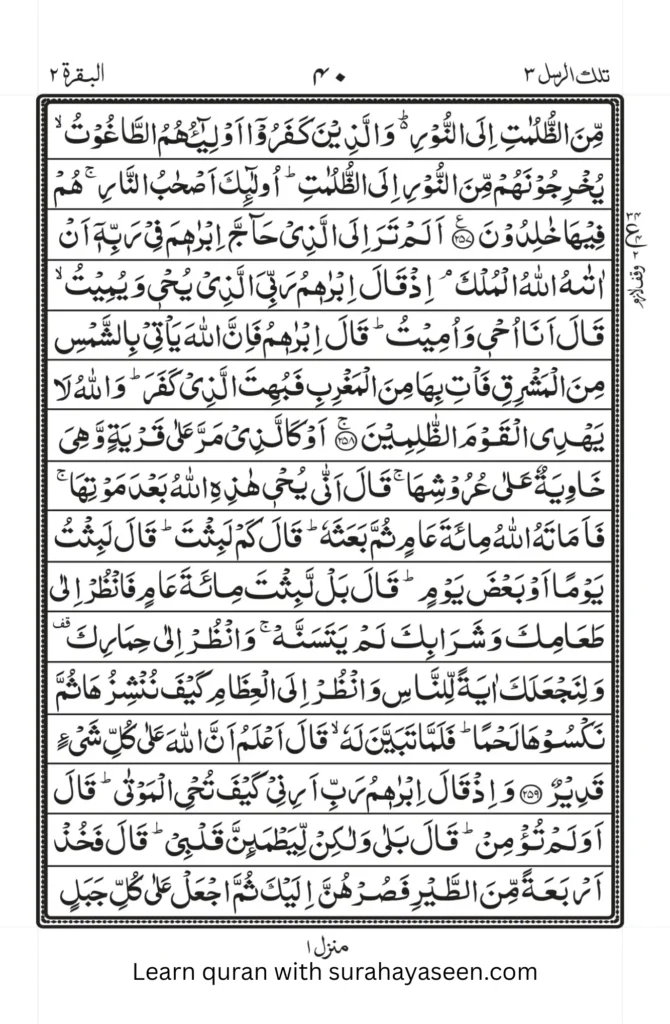 تلك الرسل ٣
٤٠
البقرة ٢
مِّنَ الظُّلُمٰتِ اِلَى النُّوْرِ ۬ؕ وَالَّذِیْنَ كَفَرُوْۤا اَوْلِیٰٓـُٔهُمُ الطَّاغُوْتُ ۙ
یُخْرِجُوْنَهُمْ مِّنَ النُّوْرِ اِلَى الظُّلُمٰتِ ؕ اُولٰٓىِٕكَ اَصْحٰبُ النَّارِ ۚ هُمْ
فِیْهَا خٰلِدُوْنَ ﴿۲۵۷﴾ اَلَمْ تَرَ اِلَى الَّذِیْ حَآجَّ اِبْرٰهٖمَ فِیْ رَبِّهٖۤ اَنْ
اٰتٰىهُ اللّٰهُ الْمُلْكَ ۘ اِذْ قَالَ اِبْرٰهٖمُ رَبِّیَ الَّذِیْ یُحْیٖ وَیُمِیْتُ ۙ
قَالَ اَنَا اُحْیٖ وَاُمِیْتُ ؕ قَالَ اِبْرٰهٖمُ فَاِنَّ اللّٰهَ یَاْتِیْ بِالشَّمْسِ
مِنَ الْمَشْرِقِ فَاْتِ بِهَا مِنَ الْمَغْرِبِ فَبُهِتَ الَّذِیْ كَفَرَ ؕ وَاللّٰهُ لَا
یَهْدِی الْقَوْمَ الظّٰلِمِیْنَ ﴿۲۵۸﴾ۚ اَوْ كَالَّذِیْ مَرَّ عَلٰى قَرْیَةٍ وَّهِیَ
خَاوِیَةٌ عَلٰى عُرُوْشِهَا ۚ قَالَ اَنّٰى یُحْیٖ هٰذِهِ اللّٰهُ بَعْدَ مَوْتِهَا ۚ
فَاَمَاتَهُ اللّٰهُ مِائَةَ عَامٍ ثُمَّ بَعَثَهٗ ؕ قَالَ كَمْ لَبِثْتَ ؕ قَالَ لَبِثْتُ
یَوْمًا اَوْ بَعْضَ یَوْمٍ ؕ قَالَ بَلْ لَّبِثْتَ مِائَةَ عَامٍ فَانْظُرْ اِلٰى
طَعَامِكَ وَشَرَابِكَ لَمْ یَتَسَنَّهْ ۚ وَانْظُرْ اِلٰى حِمَارِكَ قف
وَلِنَجْعَلَكَ اٰیَةً لِّلنَّاسِ وَانْظُرْ اِلَى الْعِظَامِ كَیْفَ نُنْشِزُهَا ثُمَّ
نَكْسُوْهَا لَحْمًا ؕ فَلَمَّا تَبَیَّنَ لَهٗ ۙ قَالَ اَعْلَمُ اَنَّ اللّٰهَ عَلٰى كُلِّ شَیْءٍ
قَدِیْرٌ ﴿۲۵۹﴾ وَاِذْ قَالَ اِبْرٰهٖمُ رَبِّ اَرِنِیْ كَیْفَ تُحْیِ الْمَوْتٰى ؕ قَالَ
اَوَلَمْ تُؤْمِنْ ؕ قَالَ بَلٰى وَلٰكِنْ لِّیَطْمَىِٕنَّ قَلْبِیْ ؕ قَالَ فَخُذْ
اَرْبَعَةً مِّنَ الطَّیْرِ فَصُرْهُنَّ اِلَیْكَ ثُمَّ اجْعَلْ عَلٰى كُلِّ جَبَلٍ
وقف لازم
منزل ١
Learn quran with surahayaseen.com